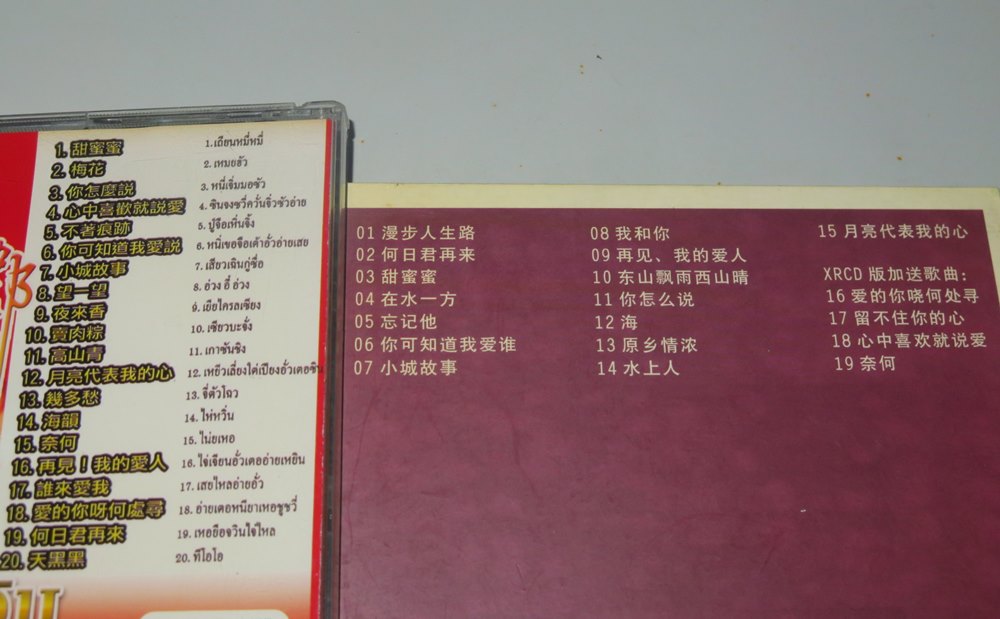 1. 甜蜜蜜
2. 梅花
3. 你怎麼說
4. 心中喜歡就說愛
5. 不著痕跡
6. 你可知道我愛說
7. 小城故事
8. 望一望
9. 夜來香
10. 賣肉粽
11. 高山青
12. 月亮代表我的心
13. 幾多愁
14. 海韻
15. 奈何
16. 再見！我的愛人
17. 誰來愛我
18. 愛的你呀何處尋
19. 何日君再來
20. 天黑黑
1. เถียนหมี่หมี่
2. เหมยฮัว
3. หนี่เจิ่มมอซัว
4. ซินจงซวี่ควั่นจิ่วซัวอ่าย
5. ปู้จือเหิ่นจิ้ง
6. หนี่เขอจือเต้าอั่วอ่ายเสย
7. เสียวเฉินกู่ซื่อ
8. อ่วง อี้ อ่วง
9. เยียไครลเซียง
10. เซียวบะจั่ง
11. เกาซันชิง
12. เหยี่วเลี่ยงไต่เปียงอั่วเตอซิน
13. จี่ตัวโฉว
14. ไห่หวิ่น
15. ไน่ยเหอ
16. ไจ่เจียนอั่วเตออ่ายเหยิน
17. เสยไหลอ่ายอั่ว
18. อ่ายเตอหนียาเหอชูซวี่
19. เหอยือจวินไจ้ไหล
20. ทีโอโอ
01 漫步人生路
02 何日君再来
03 甜蜜蜜
04 在水一方
05 忘记他
06 你可知道我爱谁
07 小城故事
08 我和你
09 再见、我的爱人
10 东山飘雨西山晴
11 你怎么说
12 海
13 原乡情浓
14 水上人
15 月亮代表我的心
XRCD 版加送歌曲：
16 爱的你哓何处寻
17 留不住你的心
18 心中喜欢就说爱
19 奈何